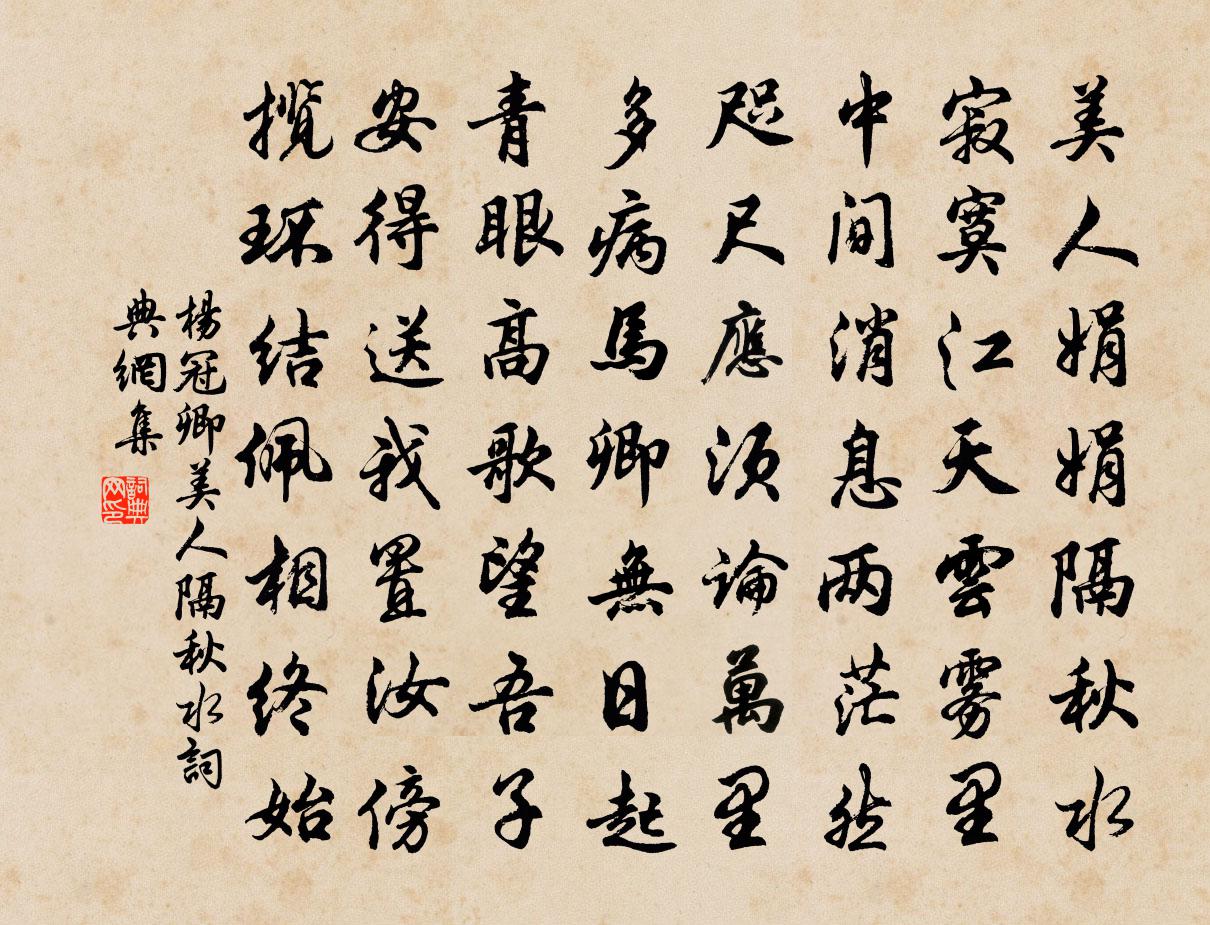 美人娟娟隔秋水
寂寞江天雲雾里
中间消息两茫然
咫尺應须論萬里
多病馬卿無日起
青眼高歌望吾子
安得送我置汝傍
揽环结佩相终始
楊冠卿美人隔秋水詞
典網集
詞典
网印